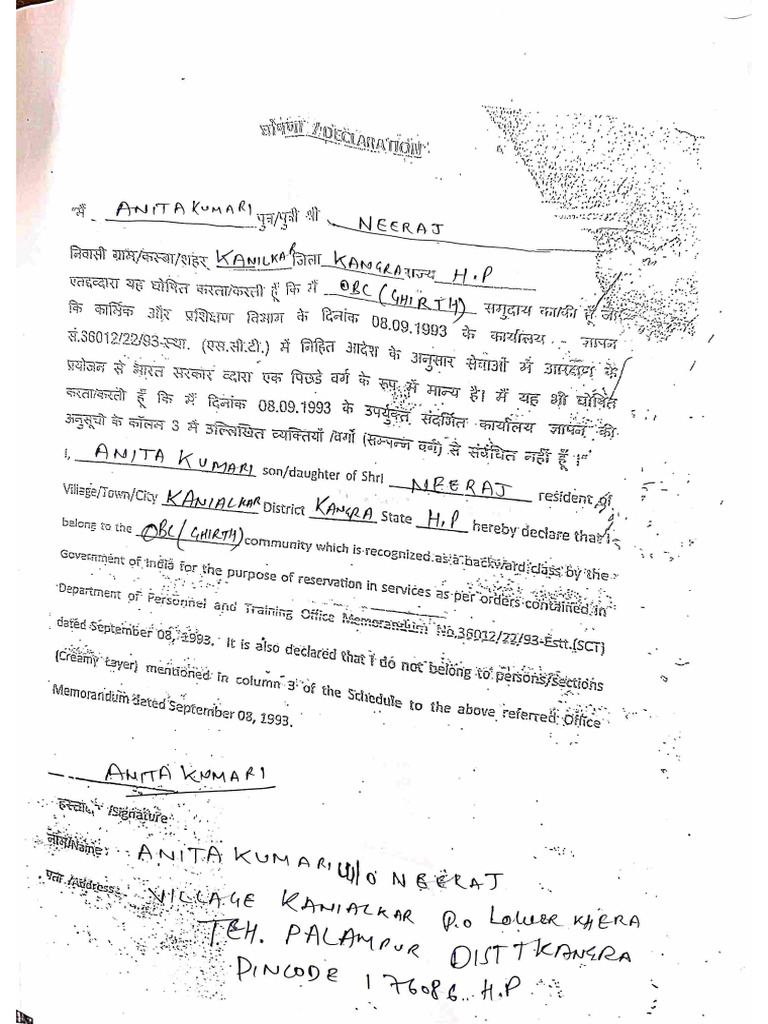 घोषणा /DECLARATION
"मैं ANITA KUMARI पुत्र/पुत्री श्री NEERAJ
निवासी ग्राम/कस्बा/शहर KANILKAR जिला KANGRA राज्य H.P
एतद्द्वारा यह घोषित करता/करती हूँ कि मैं OBC (GHIRTH) समुदाय का/की हूँ जो
कि कार्मिक और प्रशिक्षण विभाग के दिनांक 08.09.1993 के कार्यालय - ज्ञापन
सं.36012/22/93-स्था. (एस.सी.टी.) में निहित आदेश के अनुसार सेवाओं में आरक्षण के
प्रयोजन से भारत सरकार व्दारा एक पिछडे वर्ग के रूप में मान्य है। मैं यह भी घोषित
करता/करती हूँ कि मैं दिनांक 08.09.1993 के उपर्युक्त संदर्भित कार्यालय ज्ञापन की
अनुसूची के कॉलम 3 में उल्लिखित व्यक्तियों /वर्गो (सम्पन्न वर्ग) से संबंधित नहीं हूँ ।"
I, ANITA KUMARI son/daughter of Shri NEERAJ resident of
Village/Town/City KANIALKAR District KANGRA State H.P hereby declare that I
belong to the OBC (GHIRTH) community which is recognized as a backward class by the
Government of India for the purpose of reservation in services as per orders contained in
Department of Personnel and Training Office Memorandum No.36012/22/93-Estt.(SCT)
dated September 08, 1993. It is also declared that I do not belong to persons/sections
(Creamy Layer) mentioned in column 3 of the Schedule to the above referred Office
Memorandum dated September 08, 1993.
ANITA KUMARI
/Signature
नाम/Name: ANITA KUMARI W/O NEERAJ
पता /Address: VILLAGE KANIALKAR P.O LOWER KHERA
TEH. PALAMPUR DISTT KANGRA
PINCODE 176086 H.P